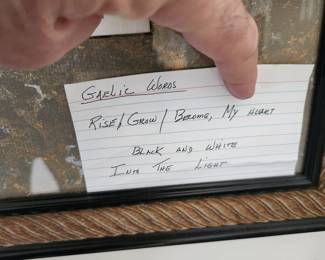 GAELIC WORDS
RISE & GROW / BECOME, MY HEART
BLACK AND WHITE
INTO THE LIGHT